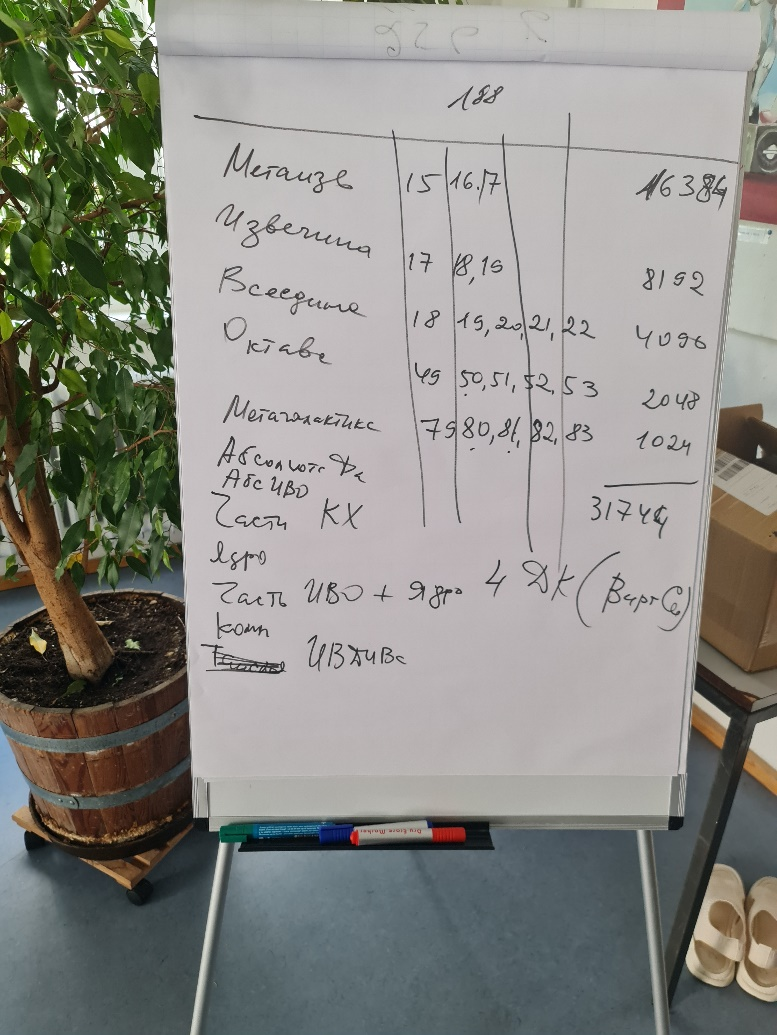 188
Метаизв 15 16.17 16384
Извечина 17 18,19 8192
Всеедина 18 19, 20, 21, 22 4096
Октава 49 50, 51, 52, 53 2048
Метагалактика 79 80, 81, 82, 83 1024
Абсолют Фа
Абс ИВО 31744
Части КХ
Ядро
Часть ИВО + Ядро 4 ДК (
Комп
ИВДИВО